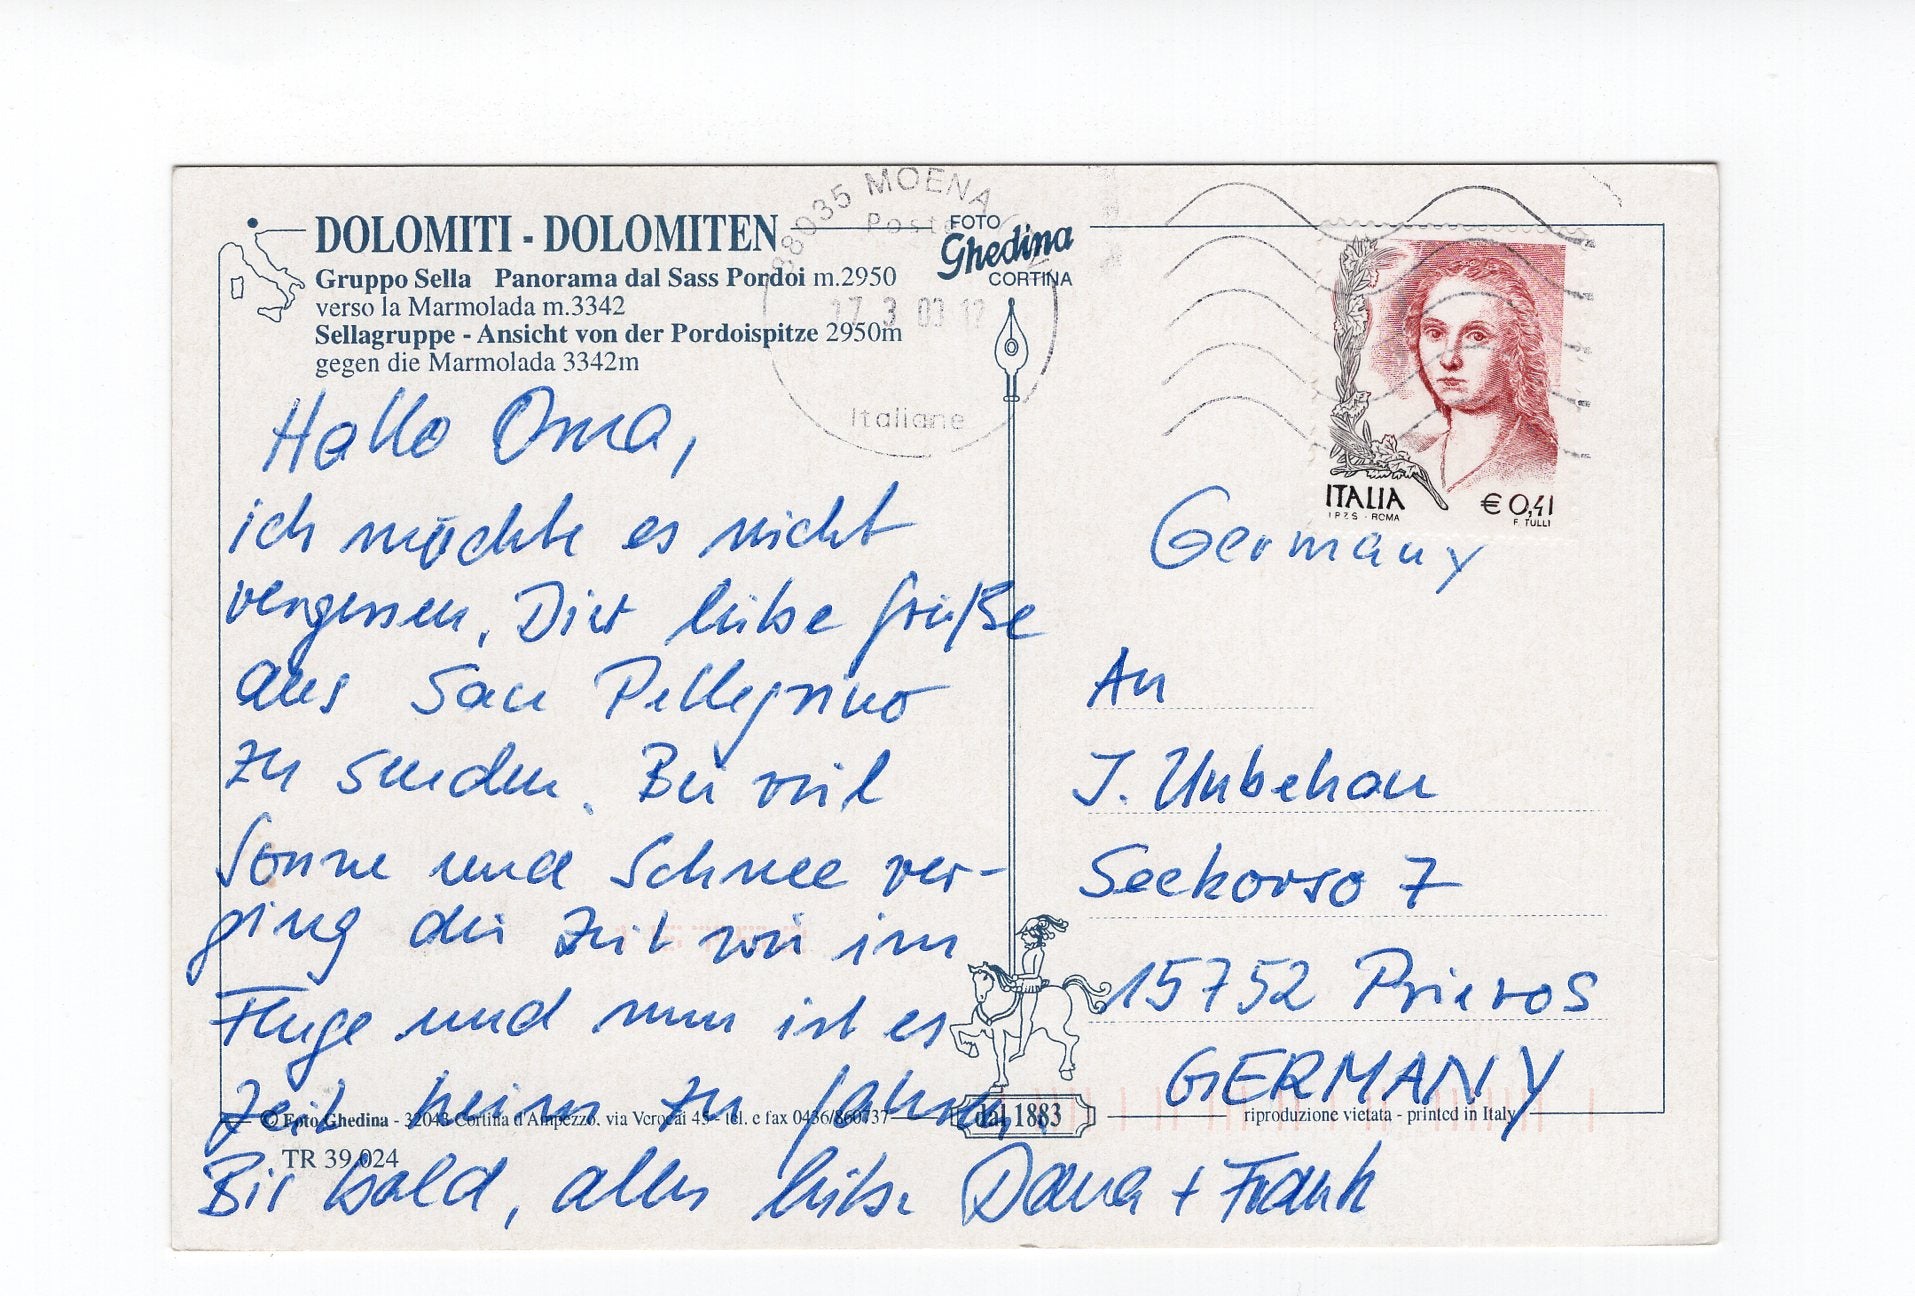 DOLOMITI - DOLOMITEN
Gruppo Sella Panorama dal Sass Pordoi m.2950
verso la Marmolada m.3342
Sellagruppe - Ansicht von der Pordoispitze 2950m
gegen die Marmolada 3342m
38035 MOENA
Poste
17 3 03 12
Italiane
FOTO
Ghedina
CORTINA
ITALIA
I.P.Z.S. - ROMA
€ 0,41
F. TULLI
Hallo Oma,
ich möchte es nicht
vergessen, Dir liebe Grüße
aus San Pellegrino
zu senden. Bei viel
Sonne und Schnee ver-
ging die Zeit wie im
Fluge und nun ist es
Zeit heim zu fahren.
Bis bald, alles liebe Dana + Frank
Germany
An
J. Unbehau
Seekorso 7
15752 Prieros
GERMANY
© Foto Ghedina - 32043 Cortina d'Ampezzo, via Verocai 45 - tel. e fax 0436/860737
dal 1883
riproduzione vietata - printed in Italy
TR 39.024